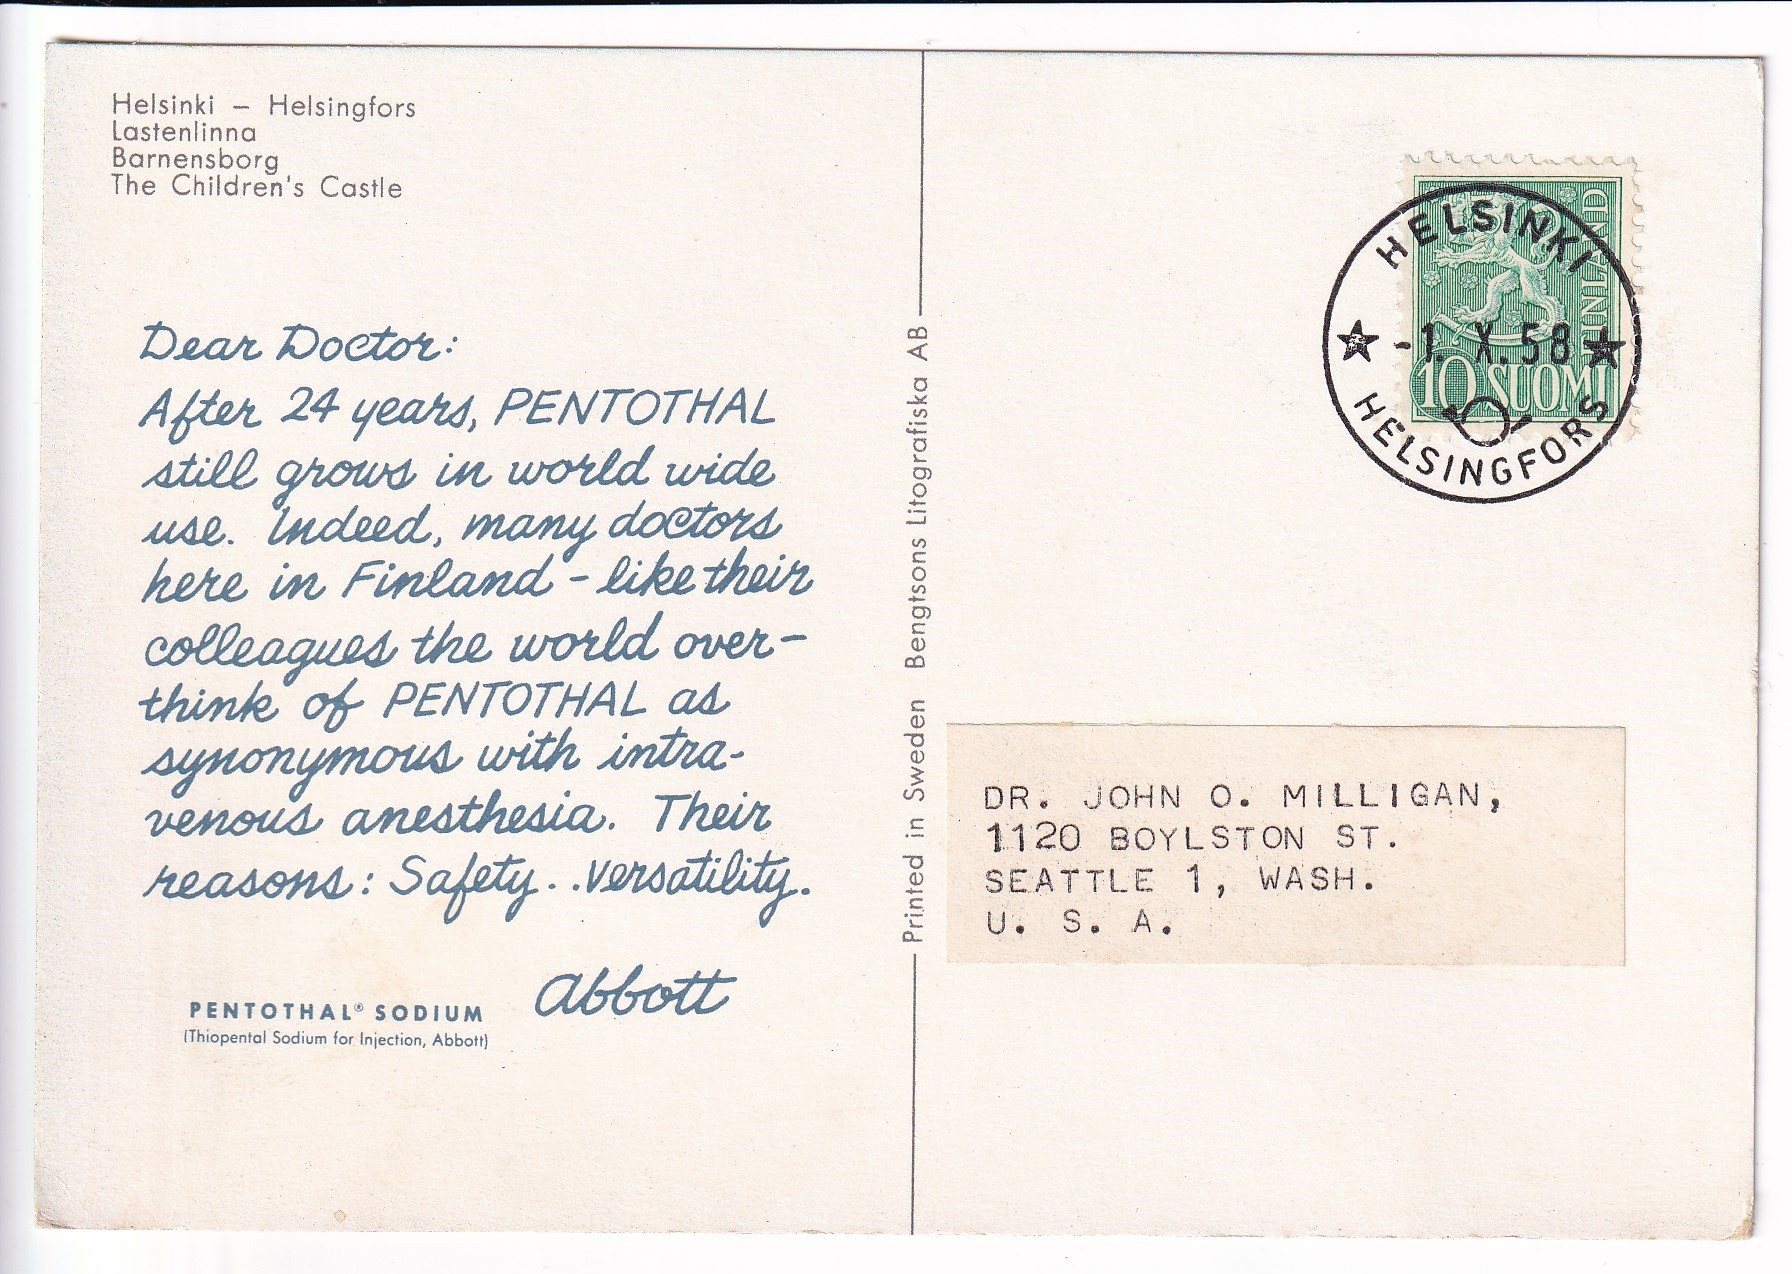 Helsinki – Helsingfors
Lastenlinna
Barnensborg
The Children's Castle
Dear Doctor:
After 24 years, PENTOTHAL
still grows in world wide
use. Indeed, many doctors
here in Finland - like their
colleagues the world over -
think of PENTOTHAL as
synonymous with intra-
venous anesthesia. Their
reasons: Safety.. versatility.
Abbott
PENTOTHAL® SODIUM
(Thiopental Sodium for Injection, Abbott)
Printed in Sweden Bengtsons Litografiska AB
HELSINKI
-1. X. 58
HELSINGFORS
FINLAND
10 SUOMI
DR. JOHN O. MILLIGAN,
1120 BOYLSTON ST.
SEATTLE 1, WASH.
U. S. A.